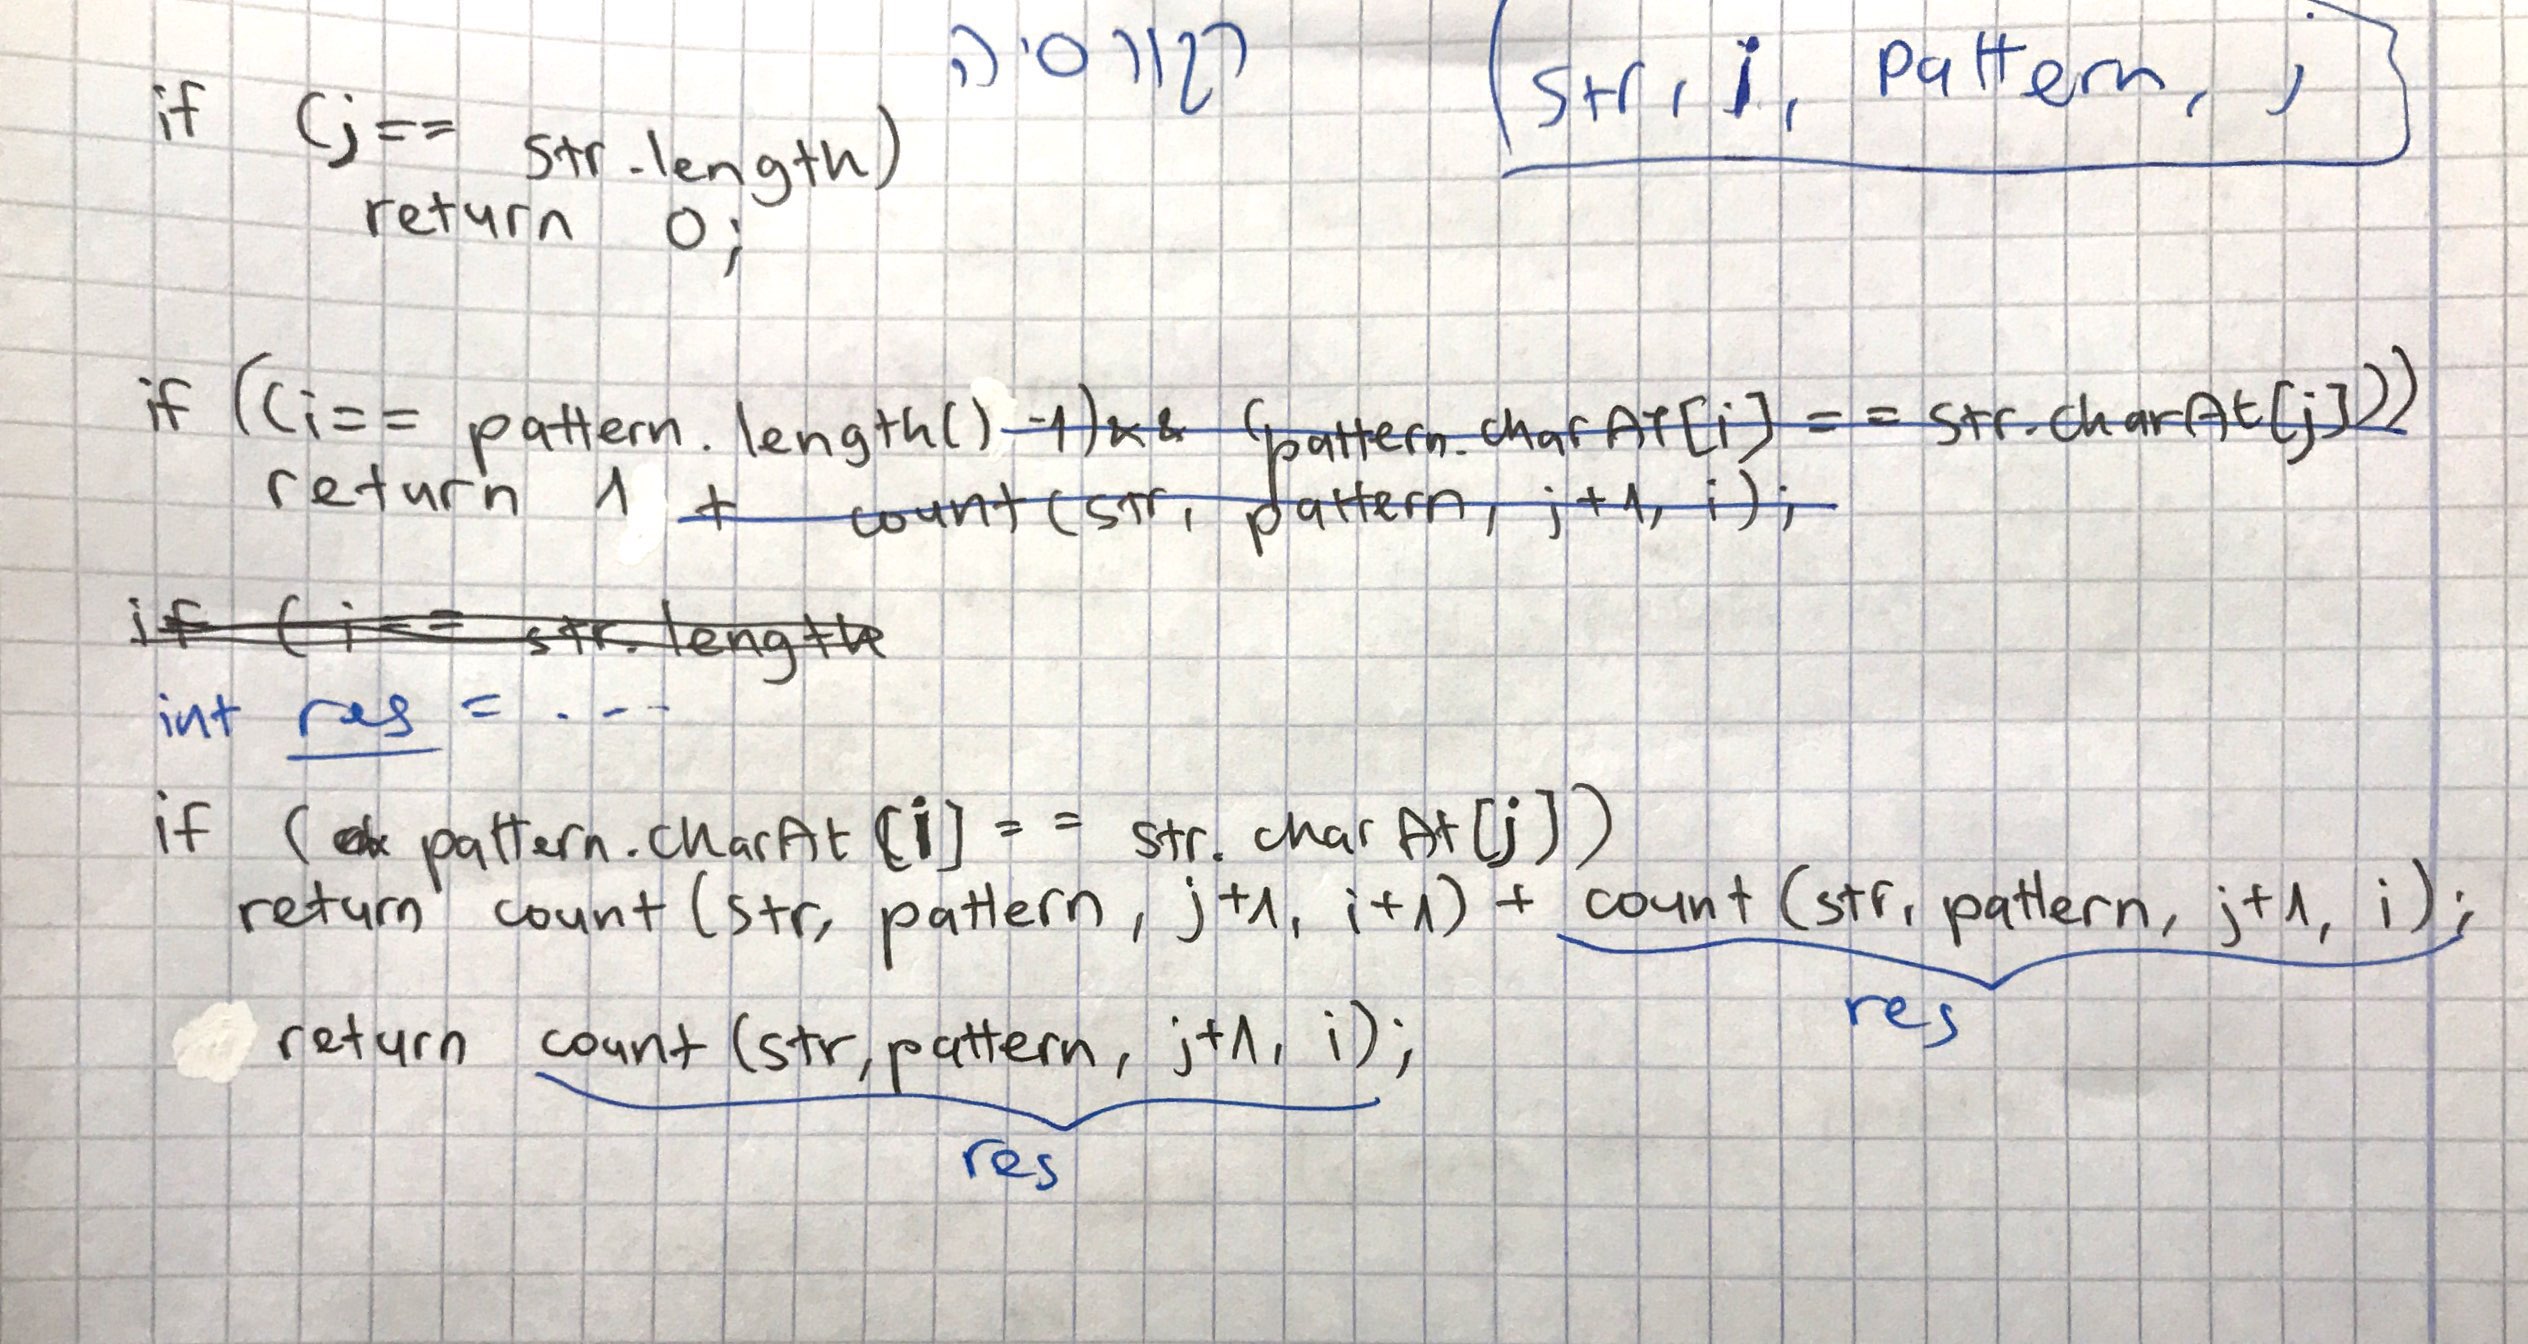 רקורסיה
(str, i, pattern, j)
if (j== str.length)
return 0;
if ((i== pattern.length() -1)&& (pattern.charAt[i] == str.charAt[j]))
return 1 + count(str, pattern, j+1, i);
if (i== str.length
int res = . --
if ( pattern.charAt[i] == str.charAt[j])
return count(str, pattern, j+1, i+1) + count(str, pattern, j+1, i);
res
return count(str, pattern, j+1, i);
res